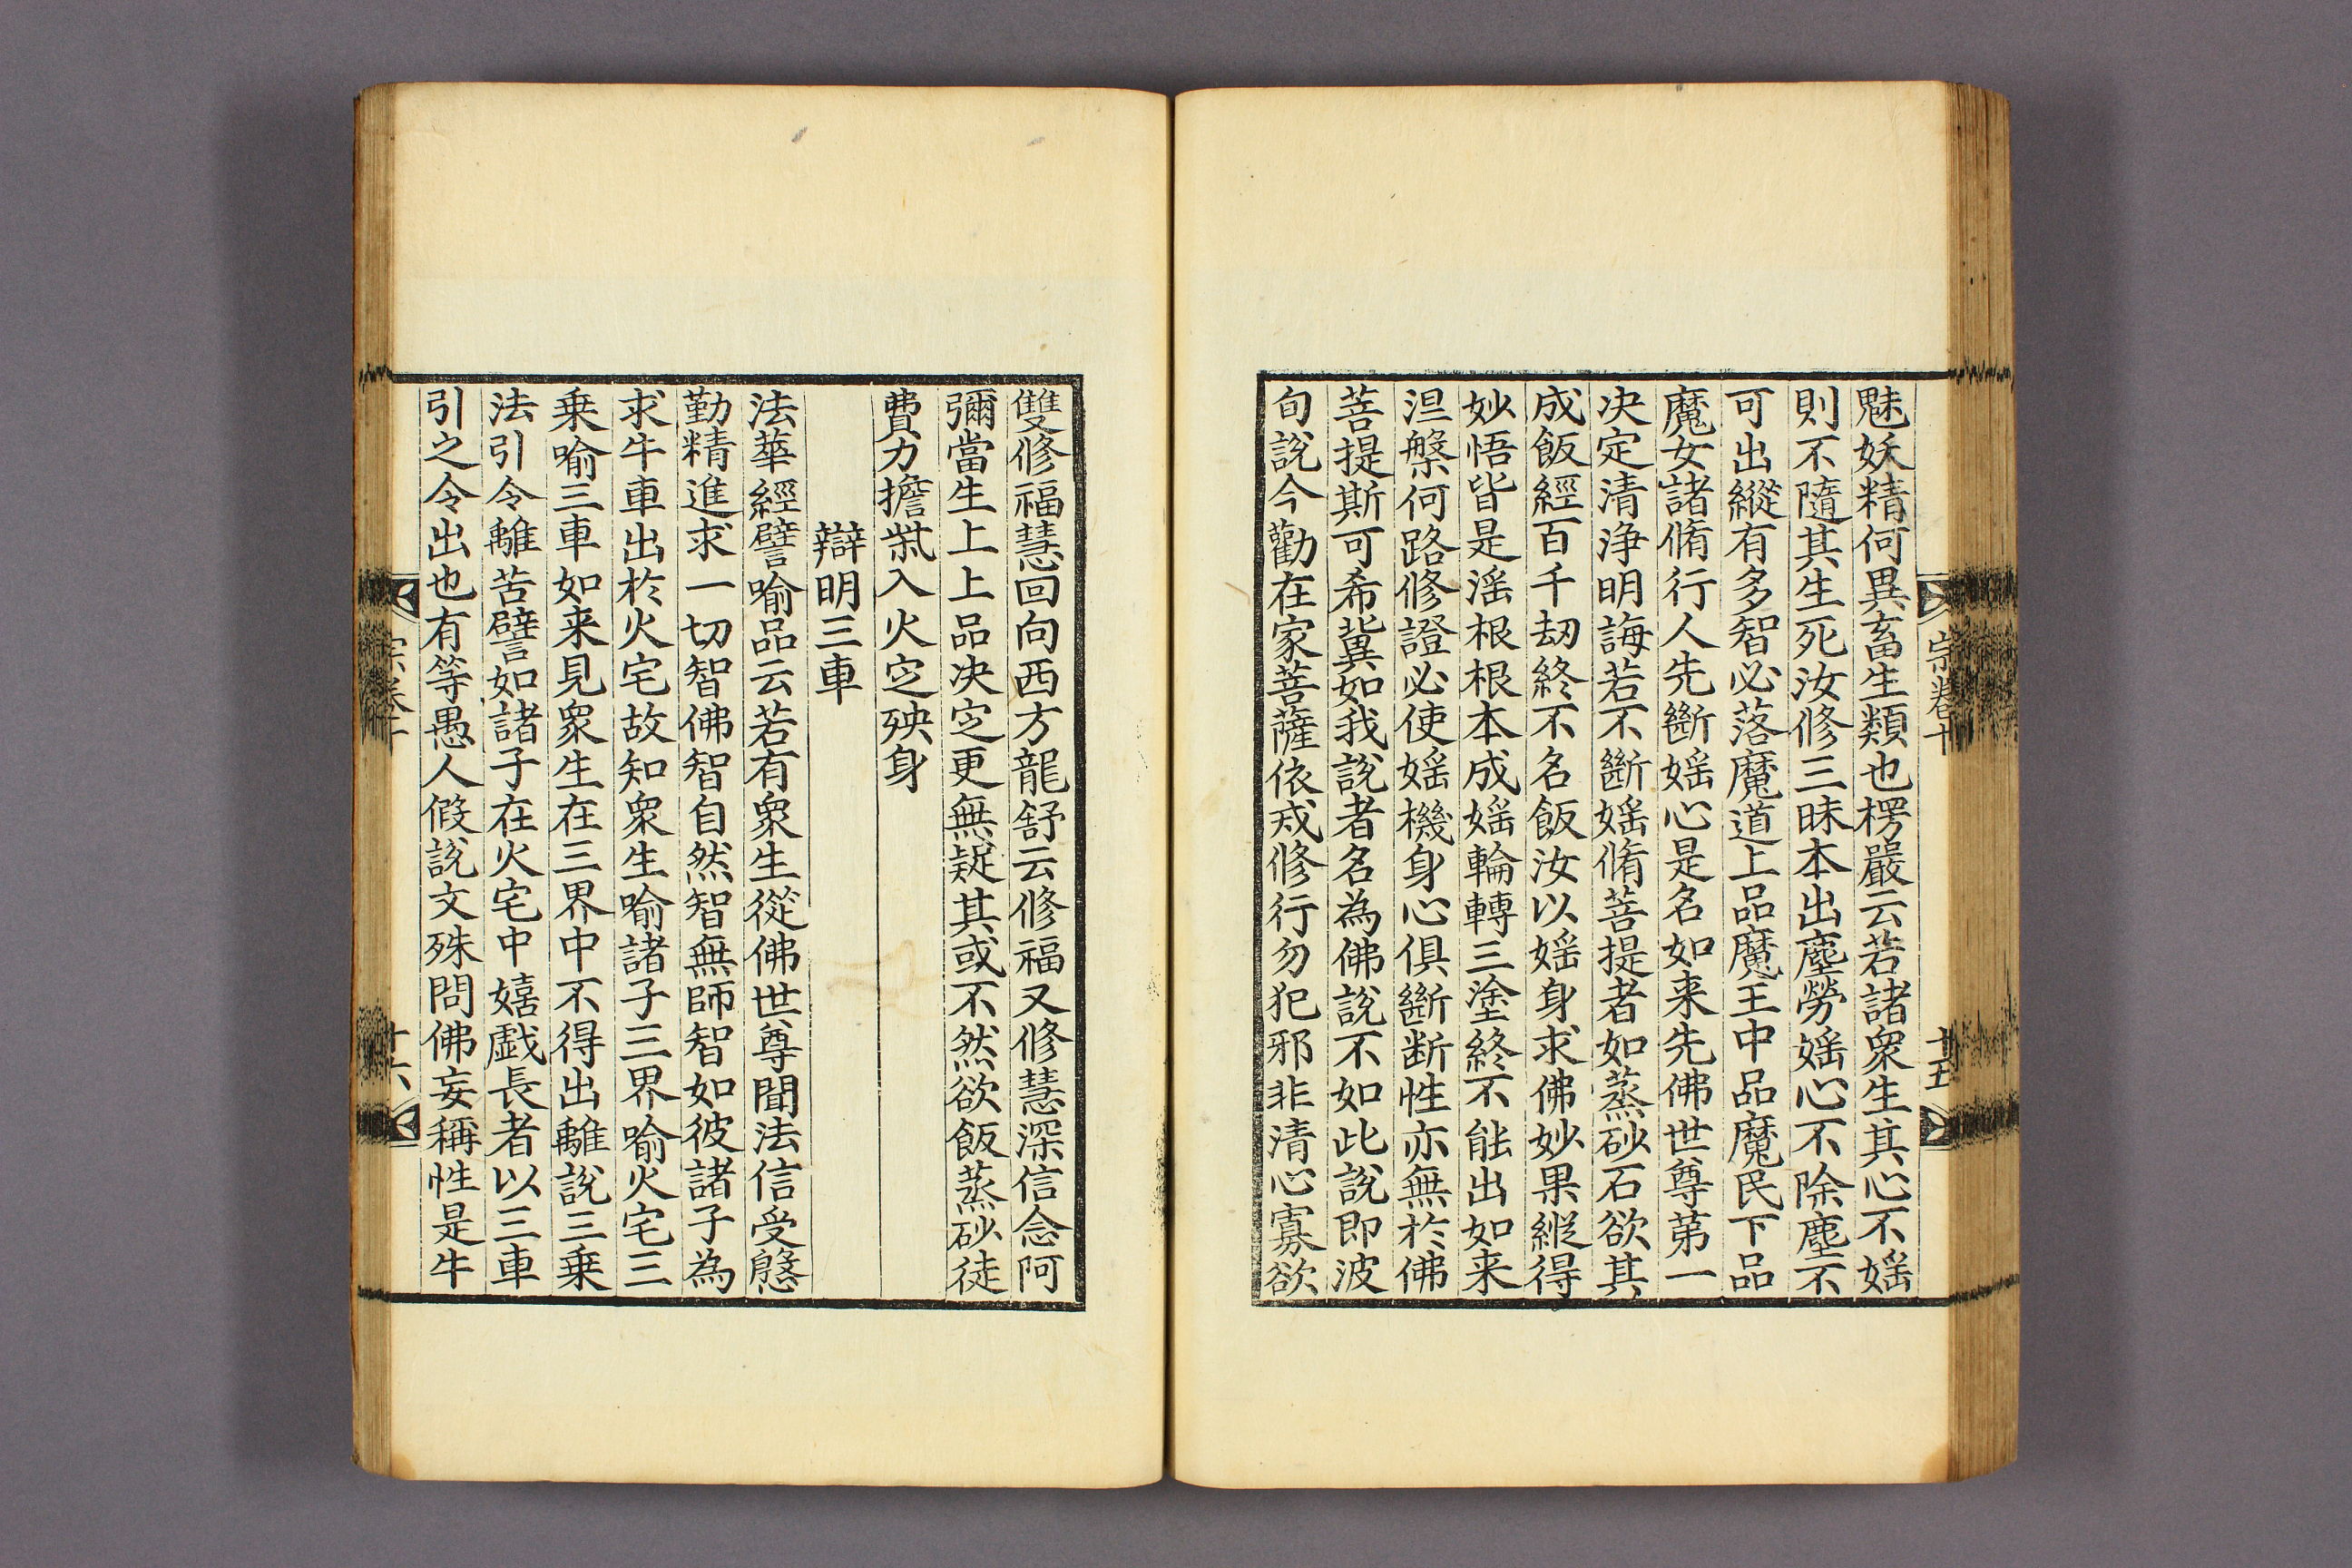 魅妖精何異畜生類也楞嚴云若諸衆生其心不婬
則不隨其生死汝修三昧本出塵勞婬心不除塵不
可出縱有多智必落魔道上品魔王中品魔民下品
魔女諸脩行人先斷婬心是名如来先佛世尊第一
决定清淨明誨若不斷婬脩菩提者如蒸砂石欲其
成飯經百千劫終不名飯汝以婬身求佛妙果縱得
妙悟皆是滛根根本成婬輪轉三塗終不能出如来
涅槃何路修證必使婬機身心俱斷断性亦無於佛
菩提斯可希兾如我說者名為佛說不如此說即波
旬說今勸在家菩薩依戒修行勿犯邪非清心寡欲
宗卷十 十五
雙修福慧回向西方龍舒云修福又修慧深信念阿
彌當生上上品决㝎更無疑其或不然欲飯蒸砂徒
費力擔柴入火㝎殃身
辯明三車
法華經譬喻品云若有衆生從佛世尊聞法信受慇
勤精進求一切智佛智自然智無師智如彼諸子為
求牛車出於火宅故知衆生喻諸子三界喻火宅三
乗喻三車如来見衆生在三界中不得出離說三乗
法引令離苦譬如諸子在火宅中嬉戯長者以三車
引之令出也有等愚人假說文殊問佛妄稱性是牛
宗卷十 十六